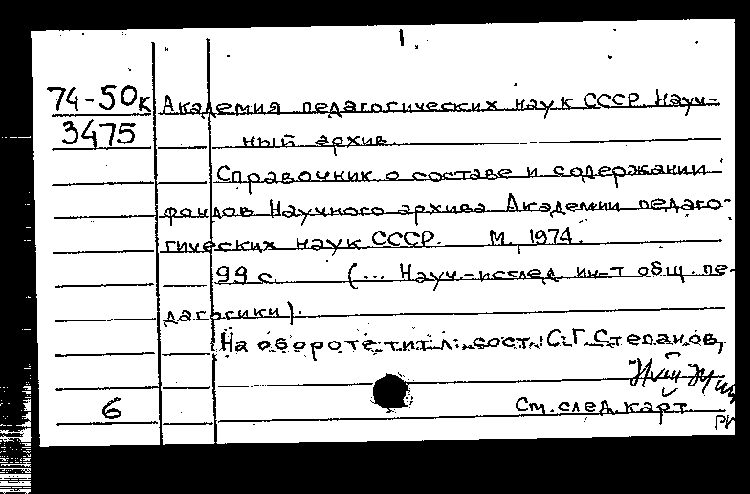 1.
74-50к Академия педагогических наук СССР. Науч-
3475 ный архив.
Справочник о составе и содержании
фондов Научного архива Академии педаго-
гических наук СССР. М., 1974.
99 с. (... Науч.-исслед. ин-т общ. пе-
дагогики).
На обороте тит. л.: сост.: С.Г. Степанов,
6 См. след. карт.